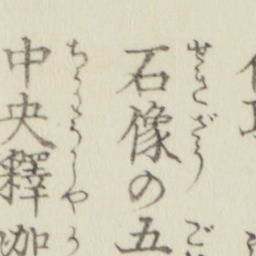 石像の五
せきざう
中央釋迦
ちうわうしや